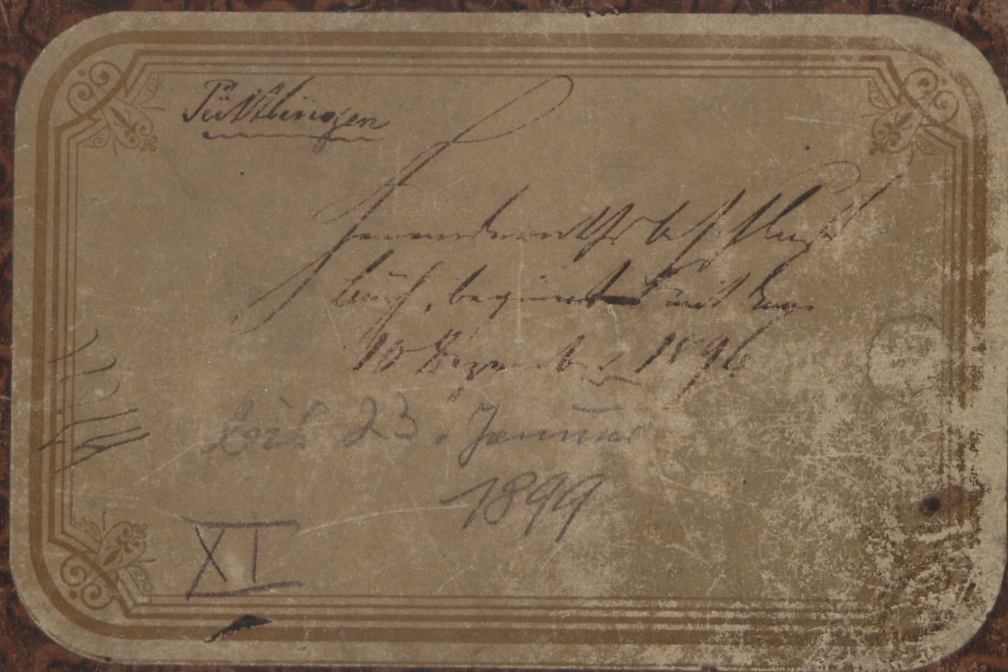 Püttlingen
Gemeinderaths beschluß
buch, beginnt mit dem
10 Dezember 1896
bis 23. Januar
1899
XI